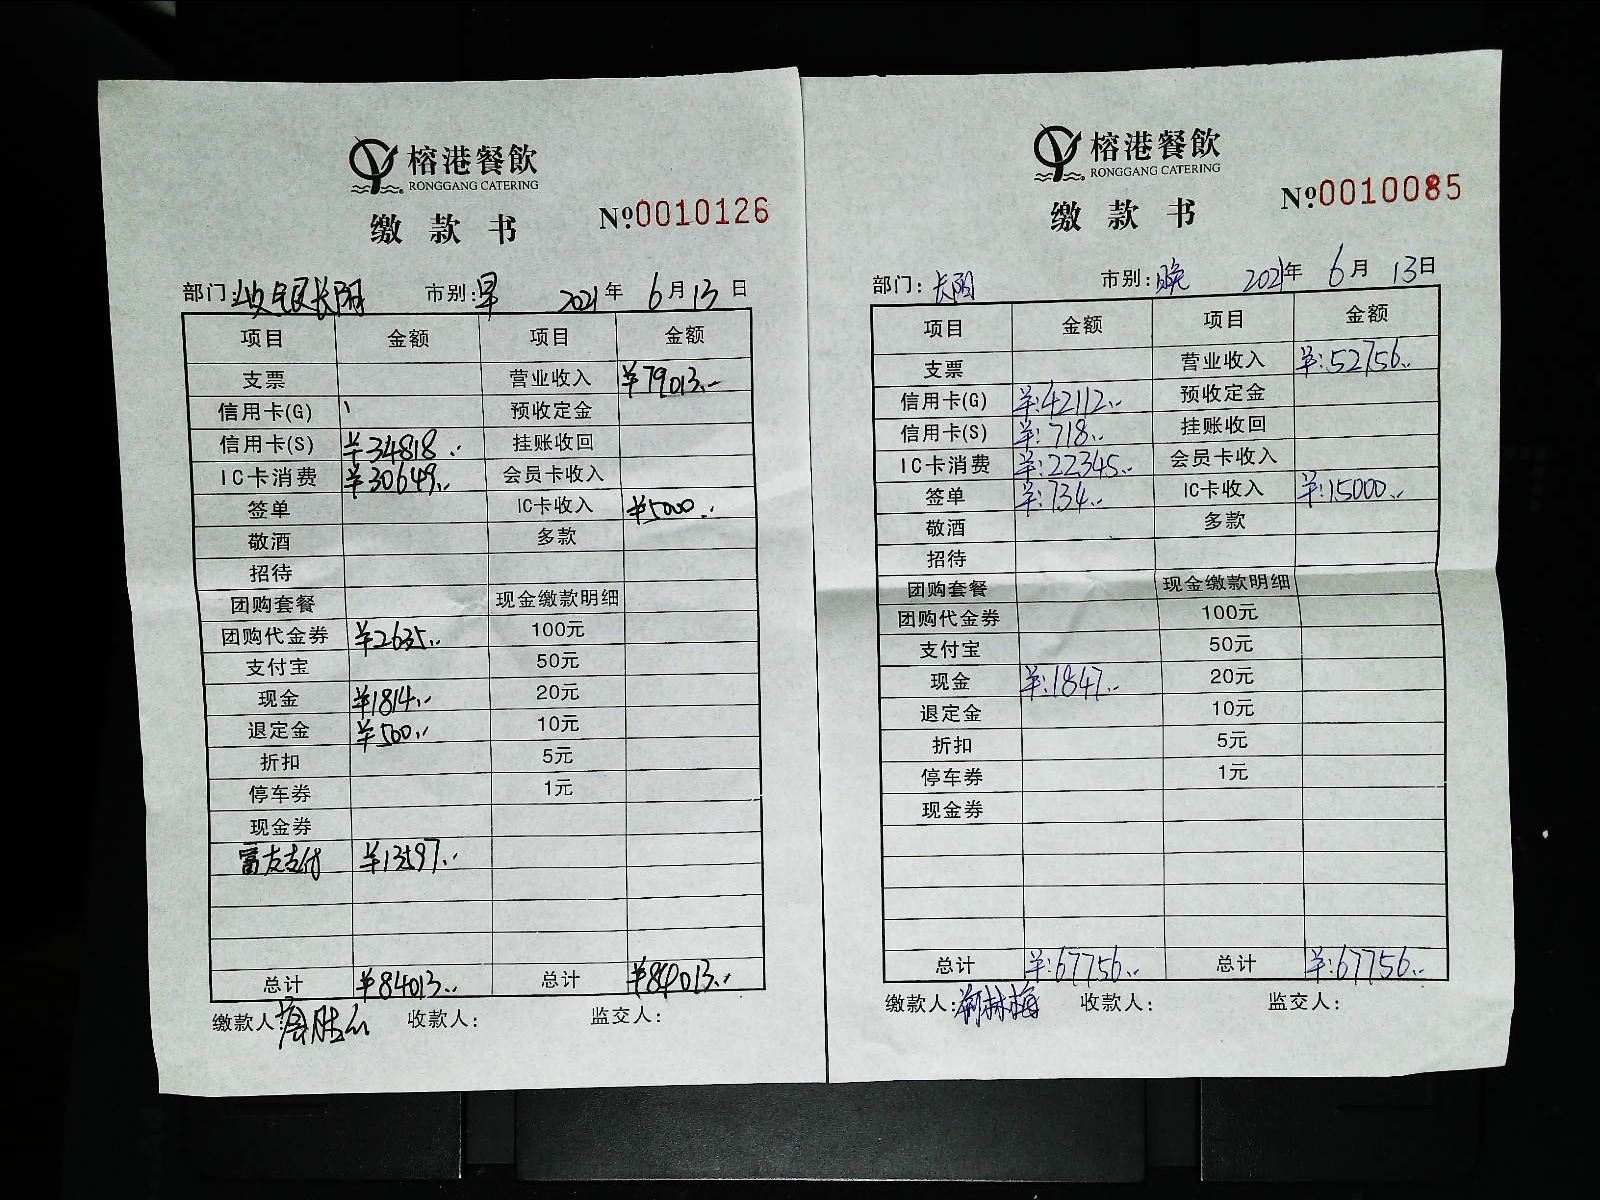 榕港餐飲
RONGGANG CATERING
缴款书 №0010126
部门:收银长阳 市别:早 2021年6月13日
项目 金额 项目 金额
支票 营业收入 ¥79013.-
信用卡(G) 预收定金
信用卡(S) ¥34818.- 挂账收回
IC卡消费 ¥30649.- 会员卡收入
签单 IC卡收入 ¥5000.-
敬酒 多款
招待
团购套餐 现金缴款明细
团购代金券 ¥2635.- 100元
支付宝 50元
现金 ¥1814.- 20元
退定金 ¥500.- 10元
折扣 5元
停车券 1元
现金券
富友支付 ¥13597.-
总计 ¥84013.- 总计 ¥84013.-
缴款人: 收款人: 监交人:
榕港餐飲
RONGGANG CATERING
缴款书 №0010085
部门:长阳 市别:晚 2021年6月13日
项目 金额 项目 金额
支票 营业收入 ¥:52756.-
信用卡(G) ¥:42112.- 预收定金
信用卡(S) ¥:718.- 挂账收回
IC卡消费 ¥:22345.- 会员卡收入
签单 ¥:734.- IC卡收入 ¥:15000.-
敬酒 多款
招待
团购套餐 现金缴款明细
团购代金券 100元
支付宝 50元
现金 ¥:1847.- 20元
退定金 10元
折扣 5元
停车券 1元
现金券
总计 ¥:67756.- 总计 ¥:67756.-
缴款人: 收款人: 监交人: